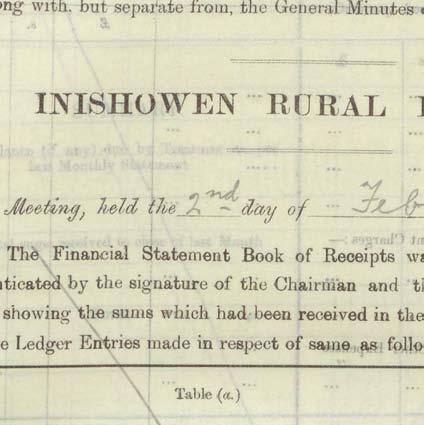 ong with, but separate from, the General Minutes
INISHOWEN RURAL
Meeting, held the 2nd day of Feb
The Financial Statement Book of Receipts wa
nticated by the signature of the Chairman and th
showing the sums which had been received in the
e Ledger Entries made in respect of same as follo
Table (a.)